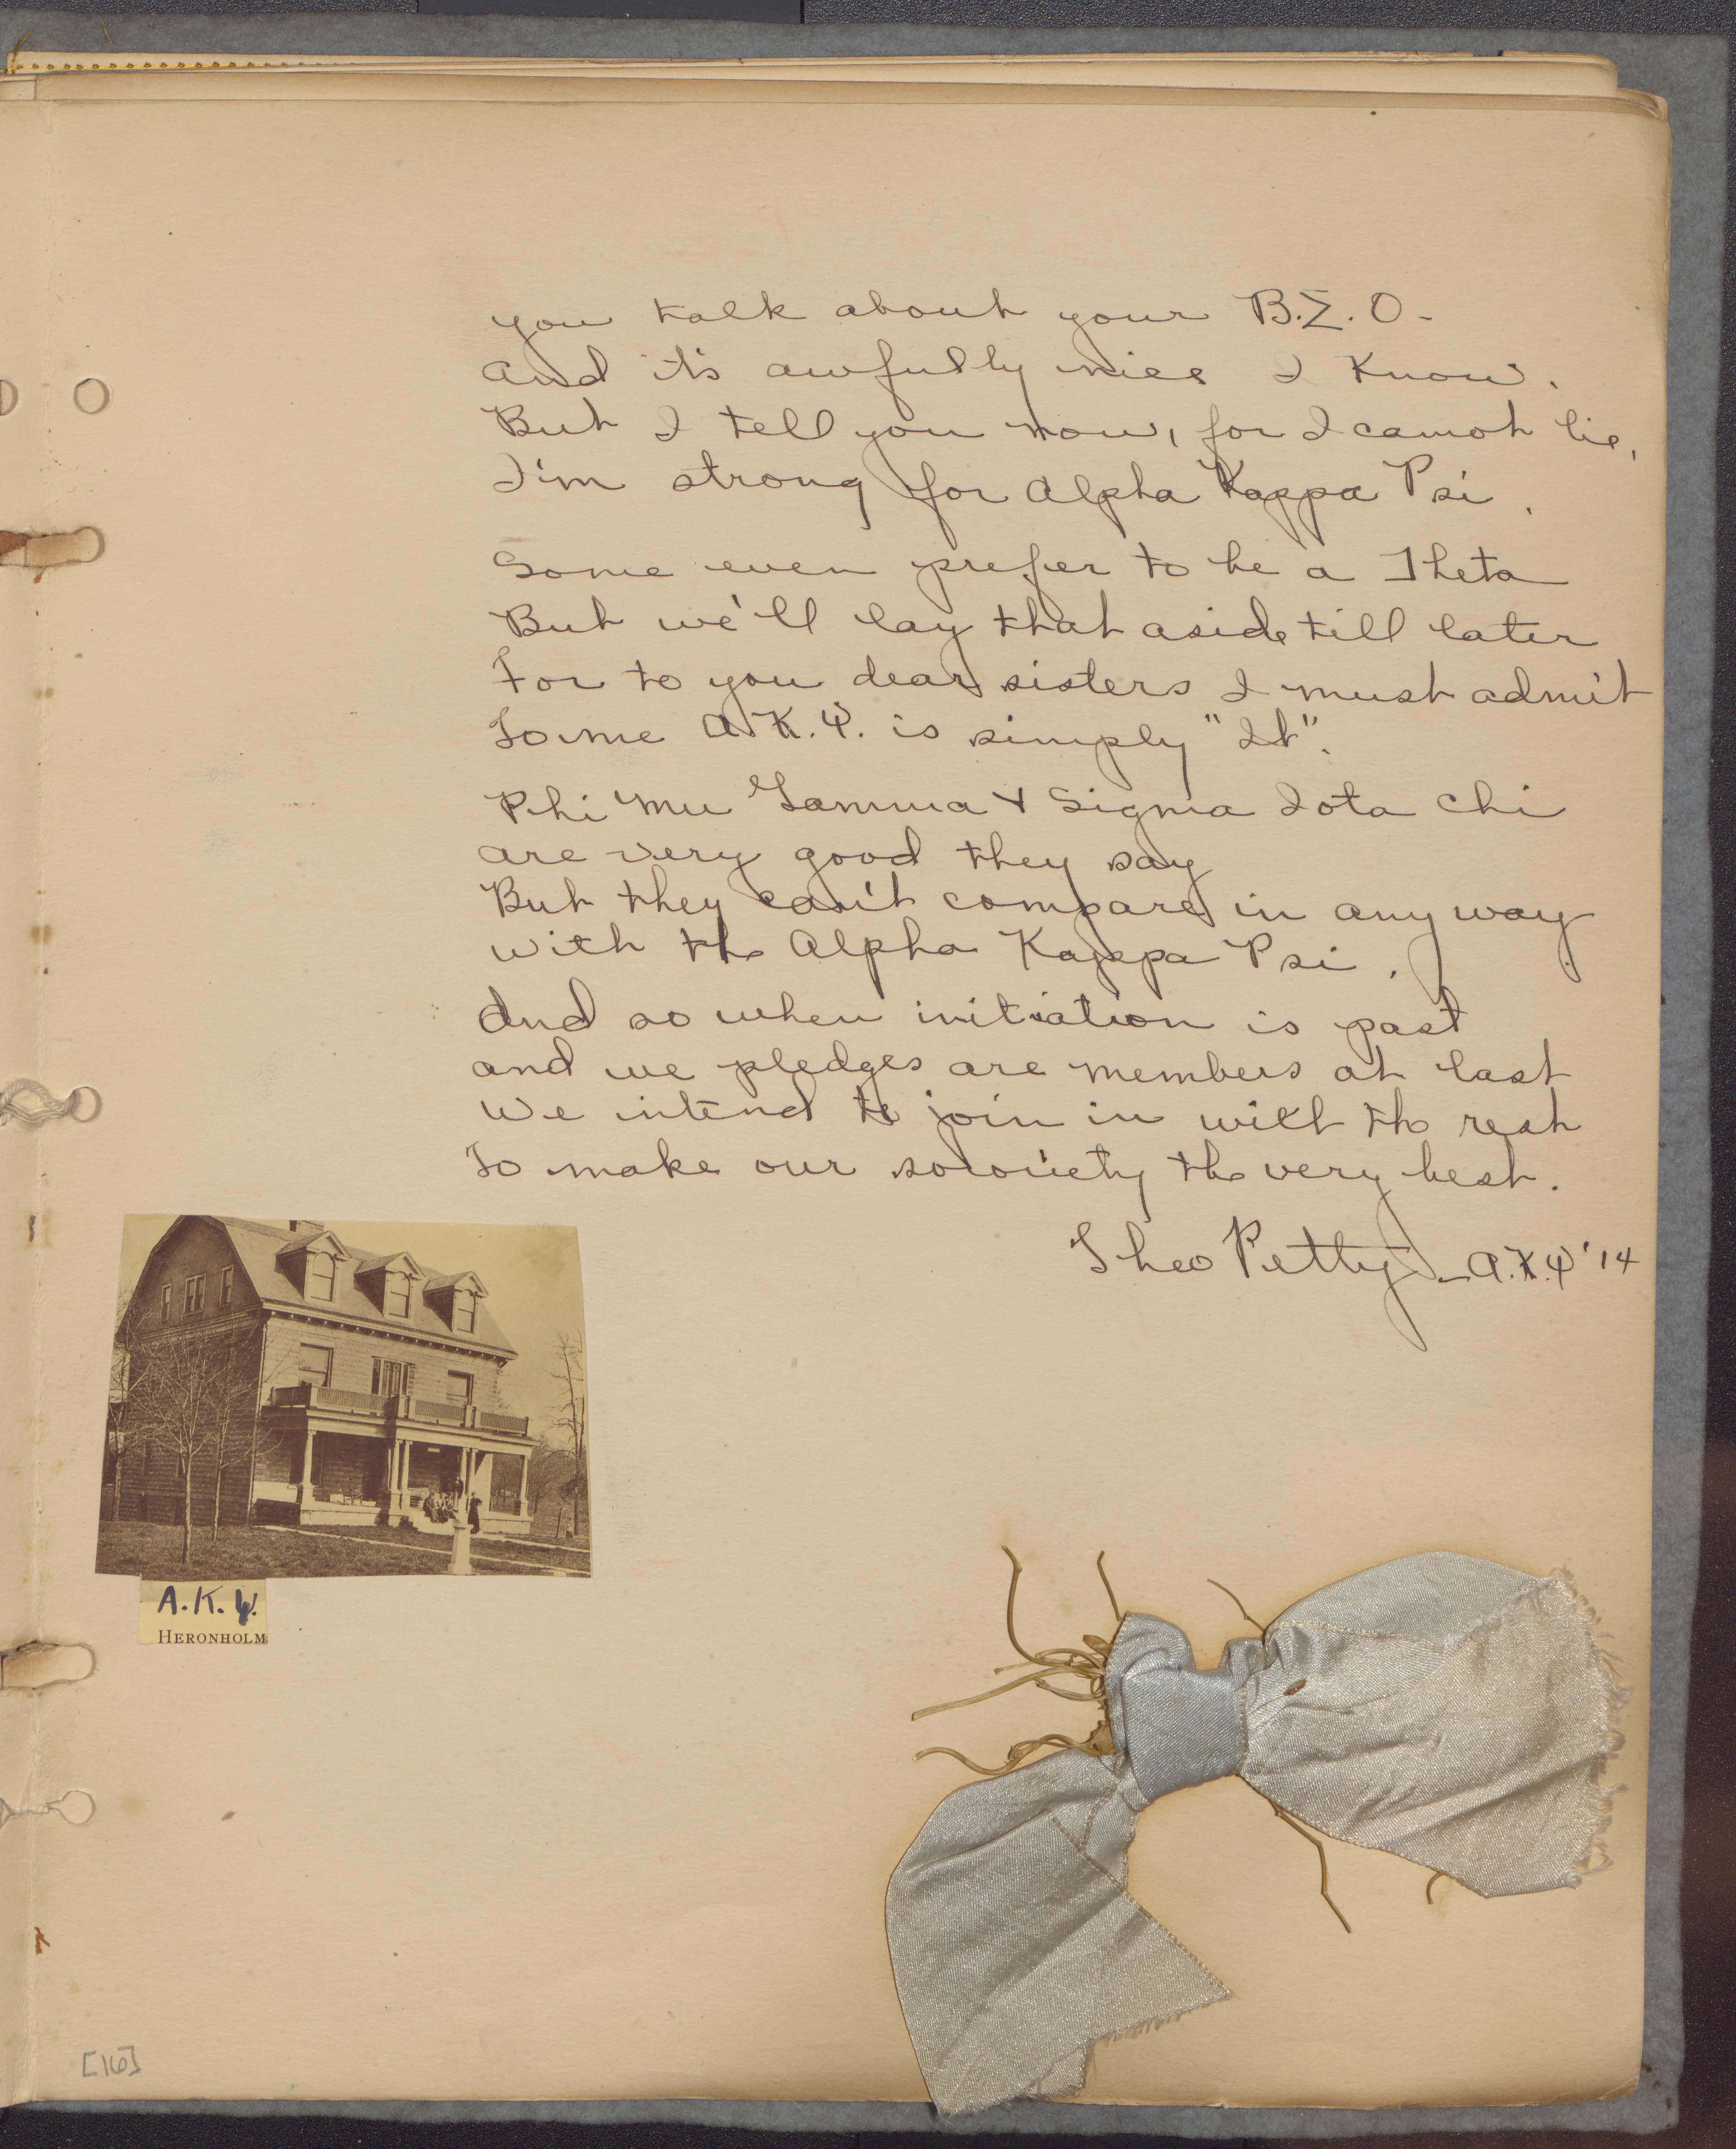 you talk about your B.Σ.O-
and it's awfully nice I know.
But I tell you now, for I cannot lie,
I'm strong for Alpha Kappa Psi.
Some even prefer to be a Theta
But we'll lay that aside till later
For to you dear sisters I must admit
To me A.K.Ψ. is simply "It".
Phi Mu Gamma & Sigma Iota Chi
are very good they say
But they can't compare in any way
with the Alpha Kappa Psi.
And so when initiation is past
and we pledges are members at last
We intend to join in with the rest
To make our sorority the very best.
Theo Petty - A.K.Ψ '14
A.K.Ψ.
HERONHOLM
[16]